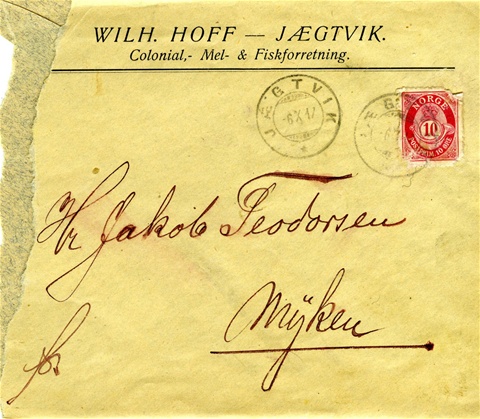 WILH. HOFF — JÆGTVIK.
Colonial,- Mel- & Fiskforretning.
JÆGTVIK
-6 X 17
NORGE
10
POSTFRIM. 10 ØRE
Hr Jakob Teodorsen
Myken